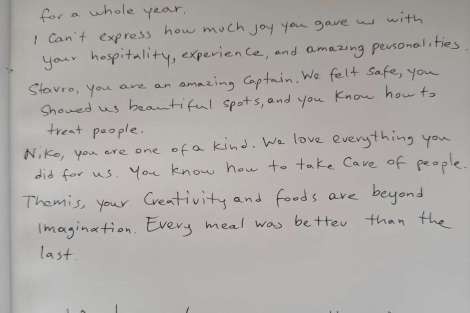 for a whole year.
I can't express how much joy you gave us with
your hospitality, experience, and amazing personalities.
Stavro, you are an amazing Captain. We felt safe, you
showed us beautiful spots, and you know how to
treat people.
Niko, you are one of a kind. We love everything you
did for us. You know how to take care of people.
Themis, your Creativity and foods are beyond
imagination. Every meal was better than the
last